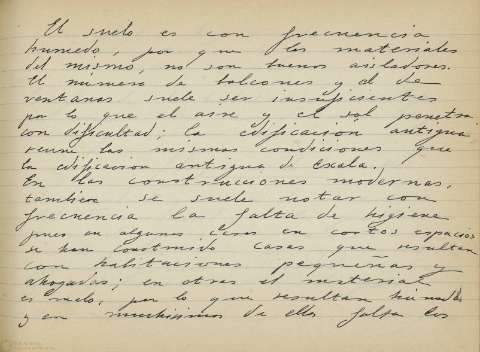 El suelo es con frecuencia
humedo, por que los materiales
del mismo, no son buenos aisladores.
El número de balcones y el de
ventanas suele ser insuficientes
por lo que el aire y el sol penetra
con dificultad; la edificacion antigua
reune las mismas condiciones que
la edificacion antigua de Exala.
En las construcciones modernas,
tambien se suele notar con
frecuencia la falta de higiene
pues en algunos en cortos espacios
se han construido casas que resultan
con habitaciones pequeñas y
ahogadas; en otras el material
es malo, por lo que resultan húmedas
y en muchisimas de ellas falta los